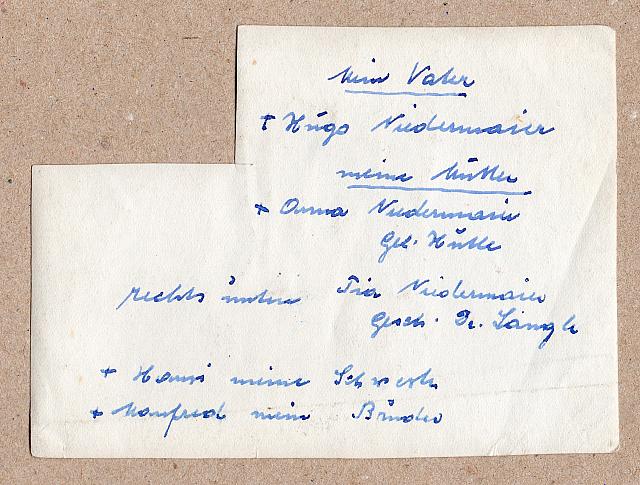 Mein Vater
+ Hugo Niedermaier
meine Mutter
+ Anna Niedermaier
Geb. Hütle
rechts unten Pia Niedermaier
Gesch. Dr. Längle
+ Hansi meine Schwester
+ Manfred mein Bruder